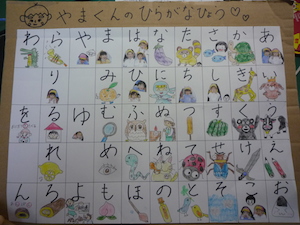 やまくんのひらがなひょう♡♡
あいうえお
かきくけこ
さしすせそ
たちつてと
なにぬねの
はひふへほ
まみむめも
やゆよ
らりるれろ
わをん